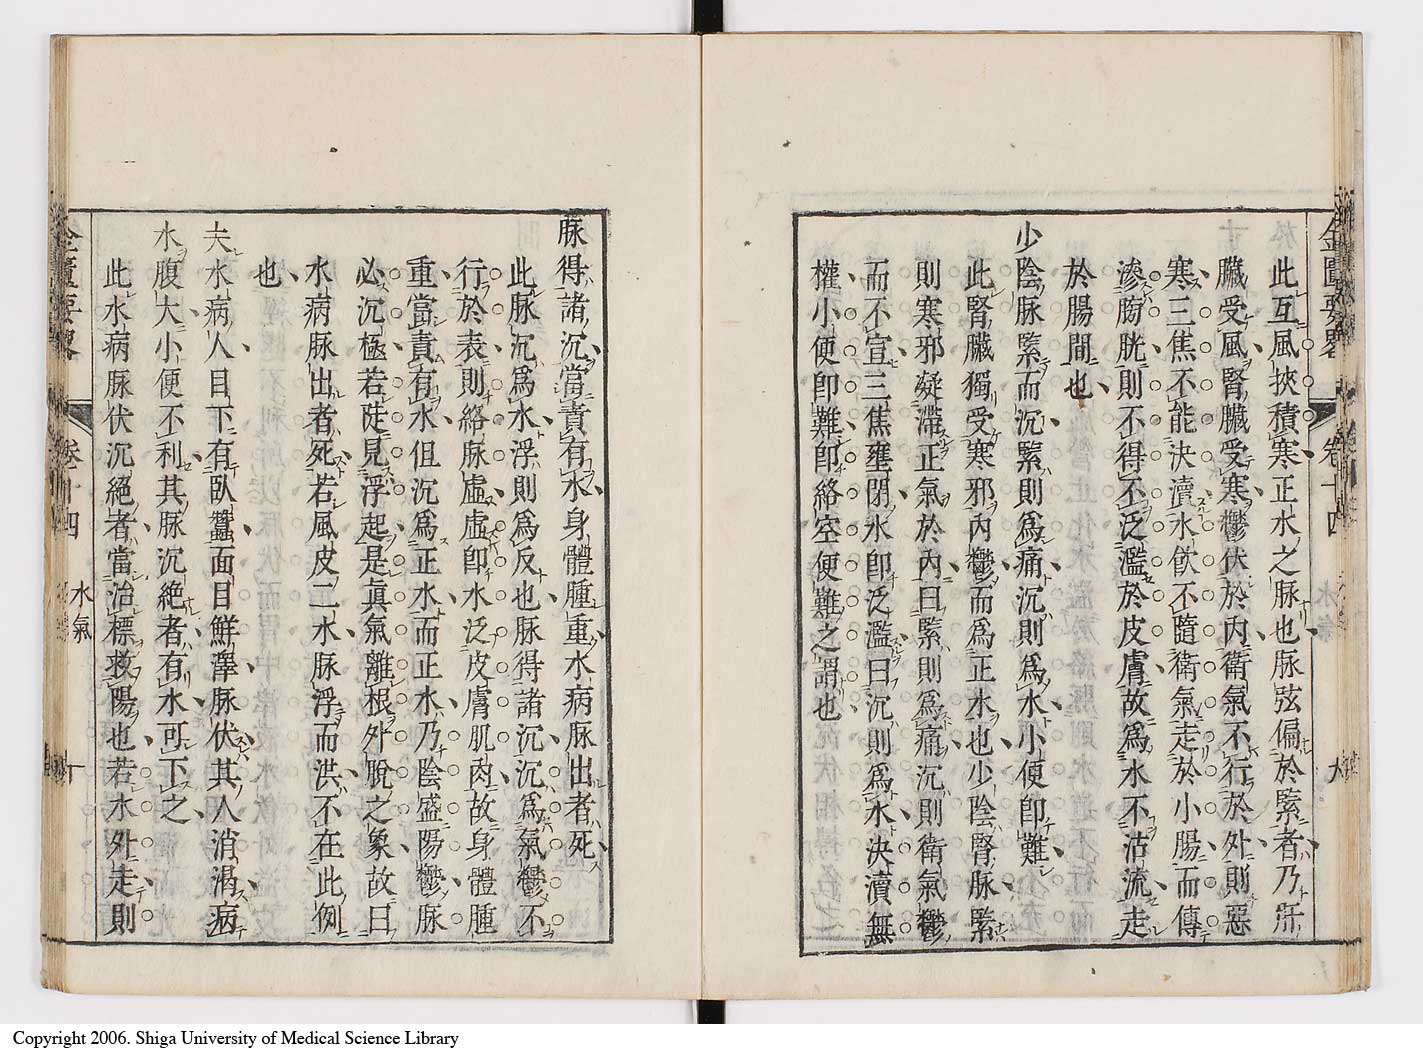 金匱要略 卷十四 水氣 九
此互風挾積寒正水之脉也脉弦偏於緊者乃肝
臟受風腎臟受寒鬱伏於内衛氣不行於外則惡
寒三焦不能決瀆水飲不隨衛氣走於小腸而傳
滲膀胱則不得不泛濫於皮膚故爲水不沽流走
於腸間也
少陰脉緊而沉緊則爲痛沉則爲水小便即難
此腎臟獨受寒邪内鬱而爲正水也少陰腎脉緊
則寒邪凝滯正氣於内曰緊則爲痛沉則衛氣鬱
而不宣三焦壅閉水即泛濫曰沉則爲水決瀆無
權小便即難即絡空便難之謂也
脉得諸沉當責有水身體腫重水病脉出者死
此脉沉爲水浮則爲反也脉得諸沉沉爲氣鬱不
行於表則絡脉虛虛即水泛皮膚肌肉故身體腫
重當責有水但沉爲正水而正水乃陰盛陽鬱脉
必沉極若陡見浮起是眞氣離根外脫之象故曰
水病脉出者死若風皮二水脉浮而洪不在此例
也
夫水病人目下有臥蠶面目鮮澤脉伏其人消渴病
水腹大小便不利其脉沉絶者有水可下之
此水病脉伏沉絕者當治標救陽也若水外走則
金匱要略 卷十四 水氣 十
Copyright 2006. Shiga University of Medical Science Library